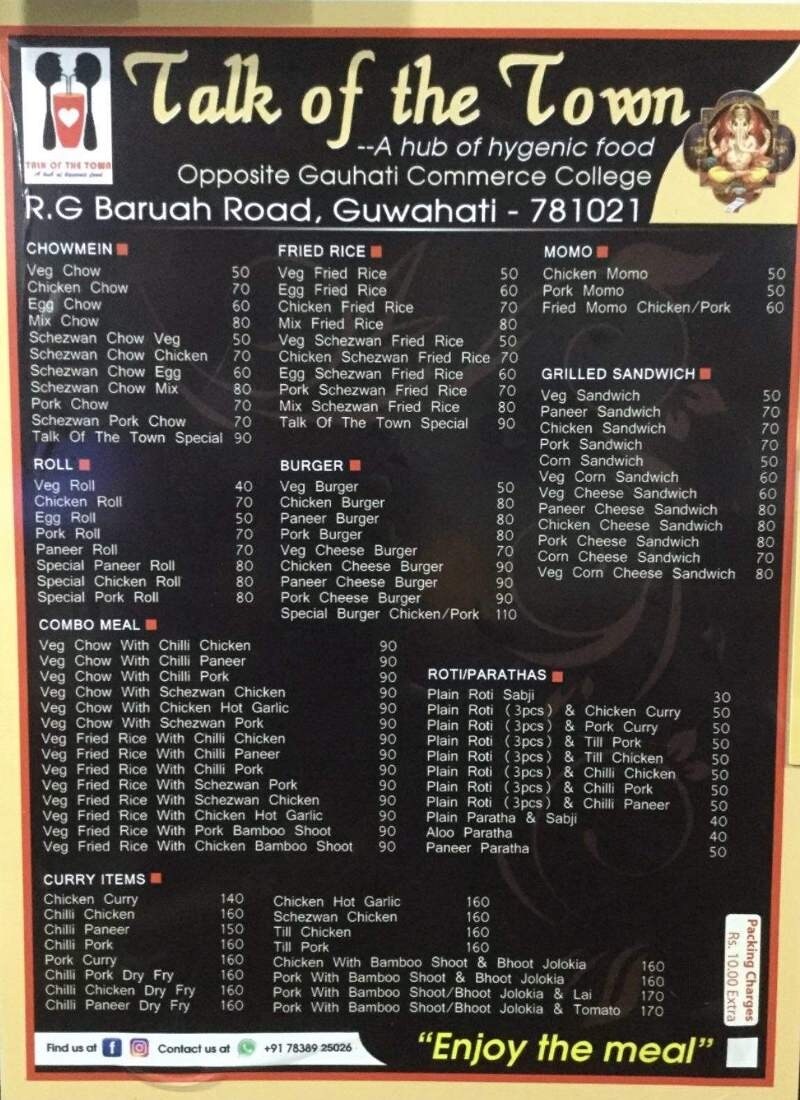 TALK OF THE TOWN
A hub of hygenic food
Talk of the Town
--A hub of hygenic food
Opposite Gauhati Commerce College
R.G Baruah Road, Guwahati - 781021
CHOWMEIN
Veg Chow 50
Chicken Chow 70
Egg Chow 60
Mix Chow 80
Schezwan Chow Veg 50
Schezwan Chow Chicken 70
Schezwan Chow Egg 60
Schezwan Chow Mix 80
Pork Chow 70
Schezwan Pork Chow 70
Talk Of The Town Special 90
FRIED RICE
Veg Fried Rice 50
Egg Fried Rice 60
Chicken Fried Rice 70
Mix Fried Rice 80
Veg Schezwan Fried Rice 50
Chicken Schezwan Fried Rice 70
Egg Schezwan Fried Rice 60
Pork Schezwan Fried Rice 70
Mix Schezwan Fried Rice 80
Talk Of The Town Special 90
MOMO
Chicken Momo 50
Pork Momo 50
Fried Momo Chicken/Pork 60
GRILLED SANDWICH
Veg Sandwich 50
Paneer Sandwich 70
Chicken Sandwich 70
Pork Sandwich 70
Corn Sandwich 50
Veg Corn Sandwich 60
Veg Cheese Sandwich 60
Paneer Cheese Sandwich 80
Chicken Cheese Sandwich 80
Pork Cheese Sandwich 80
Corn Cheese Sandwich 70
Veg Corn Cheese Sandwich 80
ROLL
Veg Roll 40
Chicken Roll 70
Egg Roll 50
Pork Roll 70
Paneer Roll 70
Special Paneer Roll 80
Special Chicken Roll 80
Special Pork Roll 80
BURGER
Veg Burger 50
Chicken Burger 80
Paneer Burger 80
Pork Burger 80
Veg Cheese Burger 70
Chicken Cheese Burger 90
Paneer Cheese Burger 90
Pork Cheese Burger 90
Special Burger Chicken/Pork 110
COMBO MEAL
Veg Chow With Chilli Chicken 90
Veg Chow With Chilli Paneer 90
Veg Chow With Chilli Pork 90
Veg Chow With Schezwan Chicken 90
Veg Chow With Chicken Hot Garlic 90
Veg Chow With Schezwan Pork 90
Veg Fried Rice With Chilli Chicken 90
Veg Fried Rice With Chilli Paneer 90
Veg Fried Rice With Chilli Pork 90
Veg Fried Rice With Schezwan Pork 90
Veg Fried Rice With Schezwan Chicken 90
Veg Fried Rice With Chicken Hot Garlic 90
Veg Fried Rice With Pork Bamboo Shoot 90
Veg Fried Rice With Chicken Bamboo Shoot 90
ROTI/PARATHAS
Plain Roti Sabji 30
Plain Roti (3pcs) & Chicken Curry 50
Plain Roti (3pcs) & Pork Curry 50
Plain Roti (3pcs) & Till Pork 50
Plain Roti (3pcs) & Till Chicken 50
Plain Roti (3pcs) & Chilli Chicken 50
Plain Roti (3pcs) & Chilli Pork 50
Plain Roti (3pcs) & Chilli Paneer 50
Plain Paratha & Sabji 40
Aloo Paratha 40
Paneer Paratha 50
CURRY ITEMS
Chicken Curry 140
Chilli Chicken 160
Chilli Paneer 150
Chilli Pork 160
Pork Curry 160
Chilli Pork Dry Fry 160
Chilli Chicken Dry Fry 160
Chilli Paneer Dry Fry 160
Chicken Hot Garlic 160
Schezwan Chicken 160
Till Chicken 160
Till Pork 160
Chicken With Bamboo Shoot & Bhoot Jolokia 160
Pork With Bamboo Shoot & Bhoot Jolokia 160
Pork With Bamboo Shoot/Bhoot Jolokia & Lai 170
Pork With Bamboo Shoot/Bhoot Jolokia & Tomato 170
Packing Charges
Rs. 10.00 Extra
Find us at f Contact us at +91 78389 25026
"Enjoy the meal"